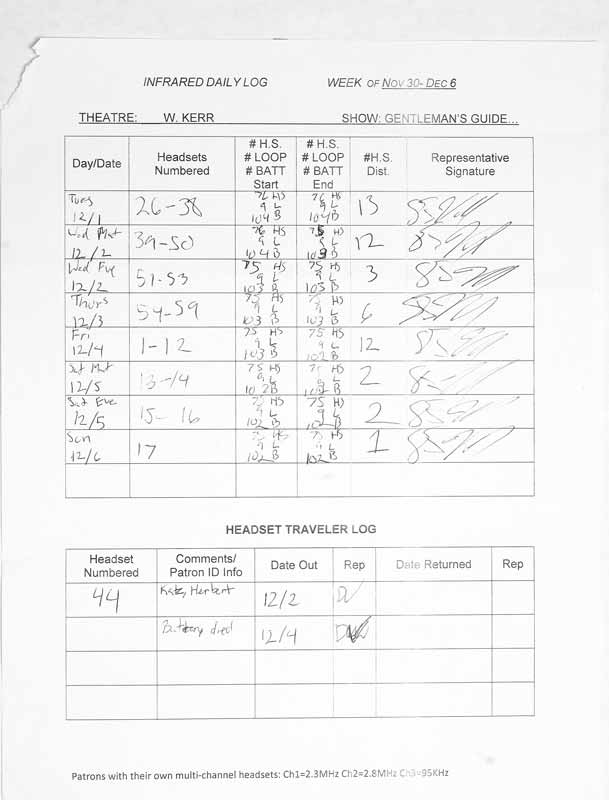 INFRARED DAILY LOG WEEK OF NOV 30- DEC 6
THEATRE: W. KERR SHOW: GENTLEMAN'S GUIDE...
Day/Date Headsets Numbered # H.S. # LOOP # BATT Start # H.S. # LOOP # BATT End #H.S. Dist. Representative Signature
Tues 12/1 26-38 76 HS 9 L 104 B 76 HS 9 L 104 B 13
Wed Mat 12/2 39-50 76 HS 9 L 104 B 75 HS 9 L 103 B 12
Wed Eve 12/2 51-53 75 HS 9 L 103 B 75 HS 9 L 103 B 3
Thurs 12/3 54-59 75 HS 9 L 103 B 75 HS 9 L 103 B 6
Fri 12/4 1-12 75 HS 9 L 103 B 75 HS 9 L 102 B 12
Sat Mat 12/5 13-14 75 HS 9 L 102 B 75 HS 9 L 102 B 2
Sat Eve 12/5 15-16 75 HS 9 L 102 B 75 HS 9 L 102 B 2
Sun 12/6 17 75 HS 9 L 102 B 75 HS 9 L 102 B 1
HEADSET TRAVELER LOG
Headset Numbered Comments/ Patron ID Info Date Out Rep Date Returned Rep
44 Katz, Herbert 12/2
Battery died 12/4
Patrons with their own multi-channel headsets: Ch1=2.3MHz Ch2=2.8MHz Ch3=95KHz